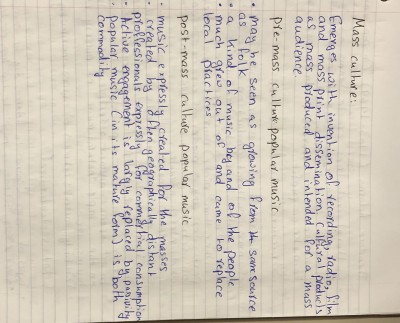 Mass culture:
Emerges with invention of recording, radio, film
and mass print dissemination, cultural products
as mass produced and intended for a mass
audience
pre-mass culture popular music
• may be seen as growing from the same source
as folk
• a kind of music by and of the people
• much grew out of and came to replace
local practices
post-mass culture popular music
• music expressly created for the masses
• created by often geographically distant
professionals expressly for commercial consumption
• Active engagement is largly replaced by passivity
popular music (in its mature form) is both
commodity